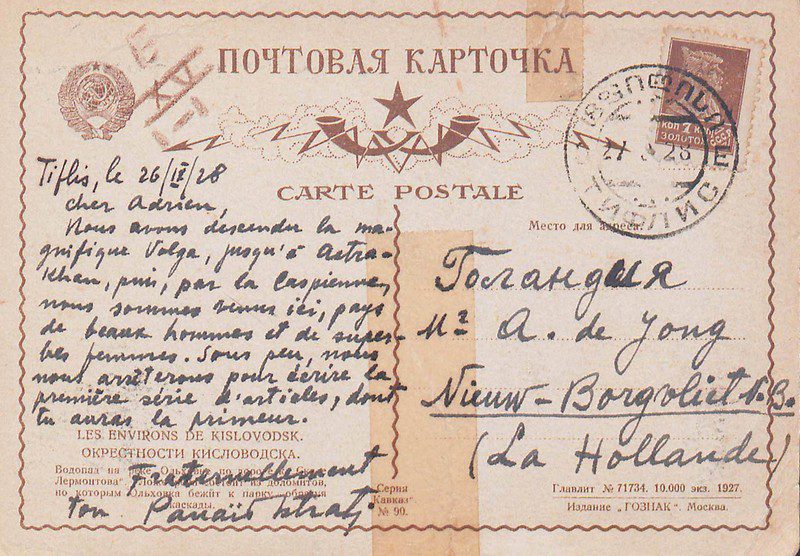 ПОЧТОВАЯ КАРТОЧКА
CARTE POSTALE
КОП 7 КОП
ЗОЛОТОМ
ТИФЛИС
Tiflis, le 26/IX/28
cher Adrien,
Nous avons descendu la ma-
gnifique Volga, jusqu'à Astra-
khan, puis, par la Caspienne,
nous sommes venus ici, pays
de beaux hommes et de super-
bes femmes. Sous peu, nous
nous arrêterons pour écrire la
première série d'articles, dont
tu auras la primeur.
Fraternellement
ton Panaït Istrati
LES ENVIRONS DE KISLOVODSK.
ОКРЕСТНОСТИ КИСЛОВОДСКА.
Водопад на реке Ольховке по дороге к
Лермонтова". из доломитов,
по которым Ольховка бежит к парку, образуя
каскады.
Серия
"Кавказ"
№ 90.
Место для адреса:
Голандия
Mr A. de Jong
Nieuw-Borgvliet N.B.
(La Hollande)
Главлит № 71734. 10.000 экз. 1927.
Издание „ГОЗНАК". Москва.